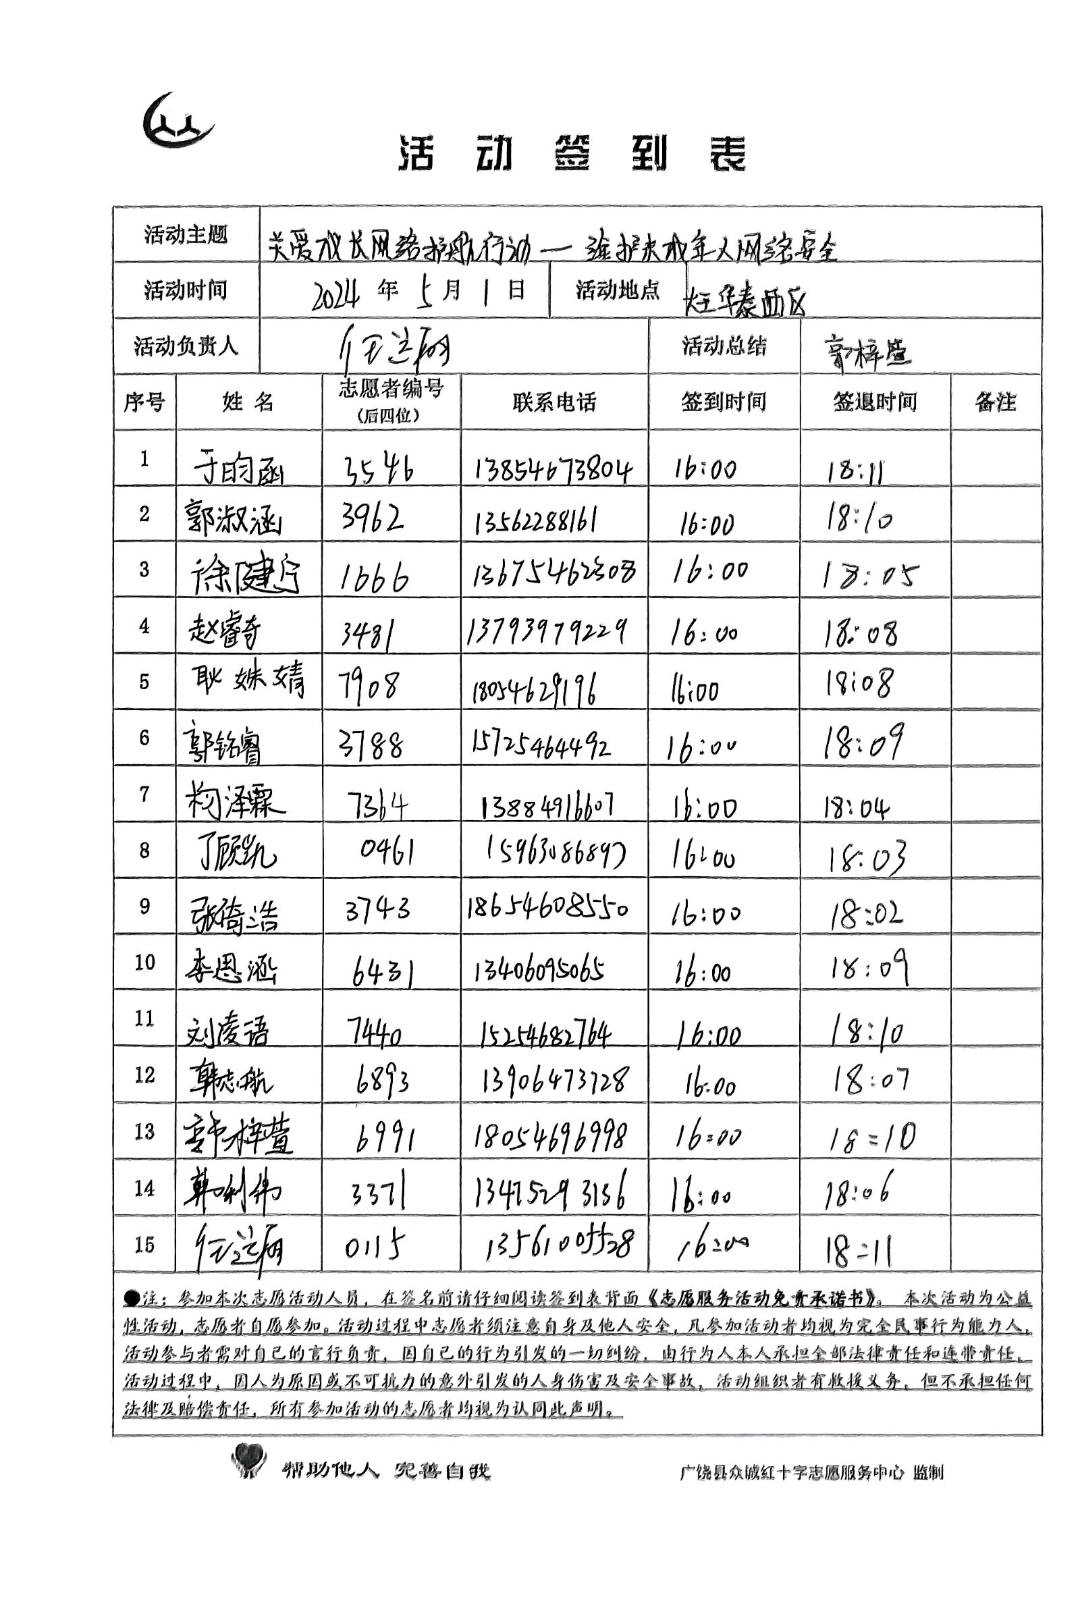 活动签到表
活动主题 关爱成长网络护航行动—涂护未成年人网络安全
活动时间 2024年5月1日 活动地点 华泰西区
活动负责人 任兰 活动总结 郭梓萱
序号 姓名 志愿者编号(后四位) 联系电话 签到时间 签退时间 备注
1 于昀函 3546 13854673804 16:00 18:11
2 郭淑涵 3962 13562288161 16:00 18:10
3 徐健宁 1666 13675462308 16:00 18:05
4 赵睿奇 3481 13793979229 16:00 18:08
5 耿姝婧 7908 18054629196 16:00 18:08
6 郭铭睿 3788 15725464492 16:00 18:09
7 杨泽霖 7364 13884916607 16:00 18:04
8 丁顾凯 0461 15963086897 16:00 18:03
9 张倚浩 3743 18654608550 16:00 18:02
10 李思涵 6431 13406095065 16:00 18:09
11 刘凌语 7440 15254682764 16:00 18:10
12 韩志航 6893 13906473728 16:00 18:07
13 郭梓萱 6991 18054696998 16:00 18:10
14 韩利伟 3371 13475293136 16:00 18:06
15 任兰 0115 13561005528 16:00 18:11
●注：参加本次志愿活动人员，在签名前请仔细阅读签到表背面《志愿服务活动免责承诺书》。本次活动为公益
性活动，志愿者自愿参加。活动过程中志愿者须注意自身及他人安全，凡参加活动者均视为完全民事行为能力人，
活动参与者需对自己的言行负责，因自己的行为引发的一切纠纷，由行为人本人承担全部法律责任和连带责任。
活动过程中，因人为原因或不可抗力的意外引发的人身伤害及安全事故，活动组织者有救援义务，但不承担任何
法律及赔偿责任，所有参加活动的志愿者均视为认同此声明。
帮助他人 完善自我 广饶县众诚红十字志愿服务中心 监制